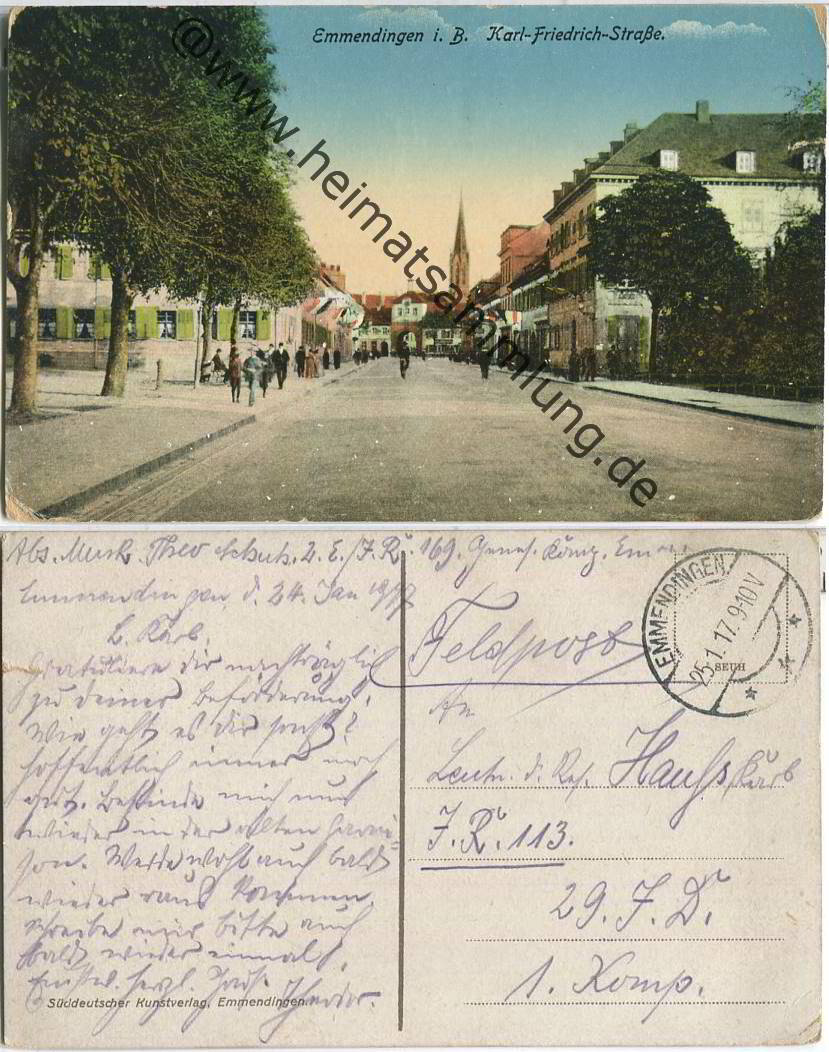 Emmendingen i. B. Karl-Friedrich-Straße.
@www.heimatsammlung.de
Abs. Musk. Theo Schuh. 2. E./J.R. 169. Genes. Komp. Em
Emmendingen d. 24. Jan 1917
L. Karb,
Gratuliere dir nachträglich
zu deiner Beförderung.
Wie geht es dir sonst?
Hoffentlich immer noch
gut. Befinde mich nun
wieder in der alten Garni=
son. Werde wohl auch bald
wieder raus kommen.
Schreibe mir bitte auch
bald wieder einmal.
herzl.
Theodor.
Süddeutscher Kunstverlag, Emmendingen.
Feldpost
EMMENDINGEN
25.1.17.9-10V
An
Leutn. d. Res. Karb
J.R. 113.
29. J. D.
1. Komp.